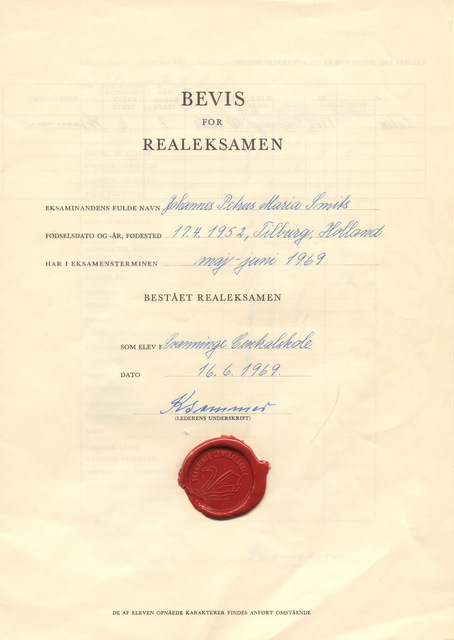 BEVIS
FOR
REALEKSAMEN
EKSAMINANDENS FULDE NAVN Johannes Petrus Maria Smits
FØDSELSDATO OG -ÅR, FØDESTED 17.4. 1952, Tilburg, Holland
HAR I EKSAMENSTERMINEN maj-juni 1969
BESTÅET REALEKSAMEN
SOM ELEV I Svenninge Centralskole
DATO 16.6.1969.
(LEDERENS UNDERSKRIFT)
CENTRALSKOLE
DE AF ELEVEN OPNÅEDE KARAKTERER FINDES ANFØRT OMSTÅENDE